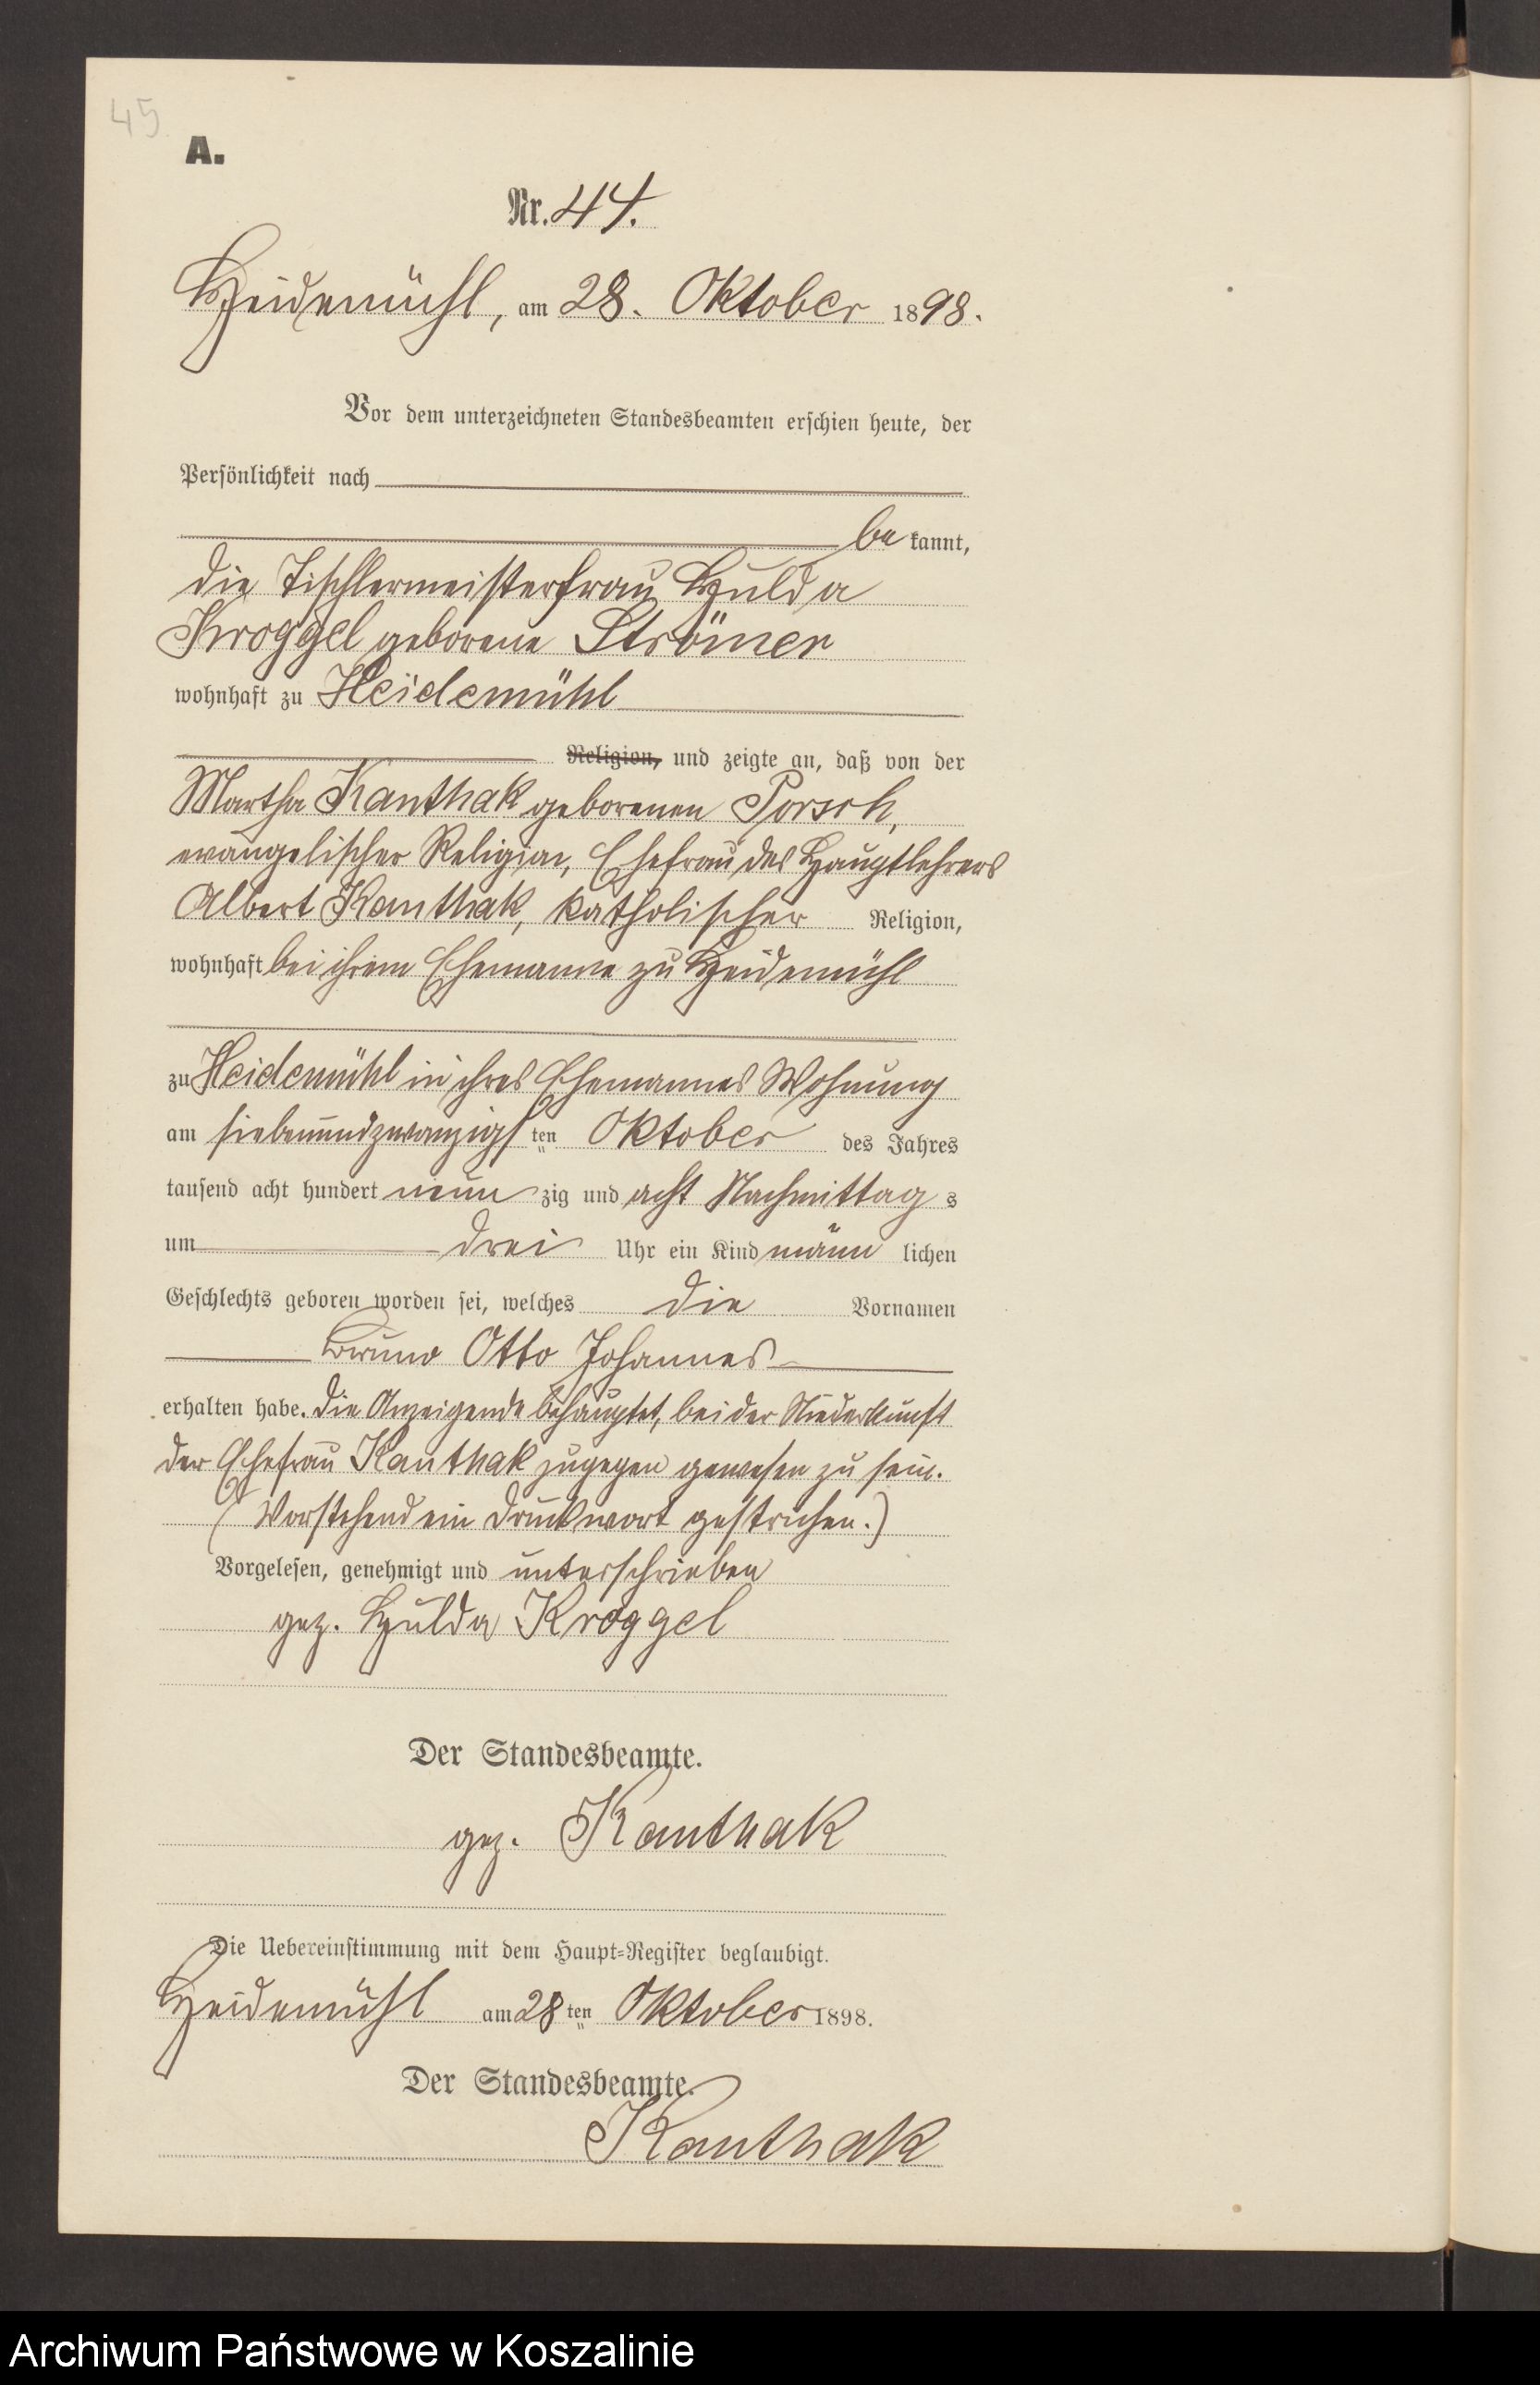 45
A.
Nr. 44.
Heidemühl, am 28. Oktober 1898.
Vor dem unterzeichneten Standesbeamten erschien heute, der
Persönlichkeit nach
be kannt,
die Tischlermeisterfrau Hulda
Kroggel geborene Strömer
wohnhaft zu Heidemühl
Religion, und zeigte an, daß von der
Martha Kanthak geborenen Porsch,
evangelischer Religion, Ehefrau des Hauptlehrers
Albert Kanthak, katholischer Religion,
wohnhaft bei ihrem Ehemanne zu Heidemühl
zu Heidemühl in ihres Ehemannes Wohnung
am siebenundzwanzigsten Oktober des Jahres
tausend acht hundert neunzig und acht Nachmittags
um drei Uhr ein Kind männlichen
Geschlechts geboren worden sei, welches die Vornamen
Bruno Otto Johannes
erhalten habe. Die Anzeigende behauptet, bei der Niederkunft
der Ehefrau Kanthak zugegen gewesen zu sein.
(Vorstehend ein Druckwort gestrichen.)
Vorgelesen, genehmigt und unterschrieben
gez. Hulda Kroggel
Der Standesbeamte.
gez. Kanthak
Die Uebereinstimmung mit dem Haupt=Register beglaubigt.
Heidemühl am 28ten Oktober 1898.
Der Standesbeamte.
Kanthak
Archiwum Państwowe w Koszalinie